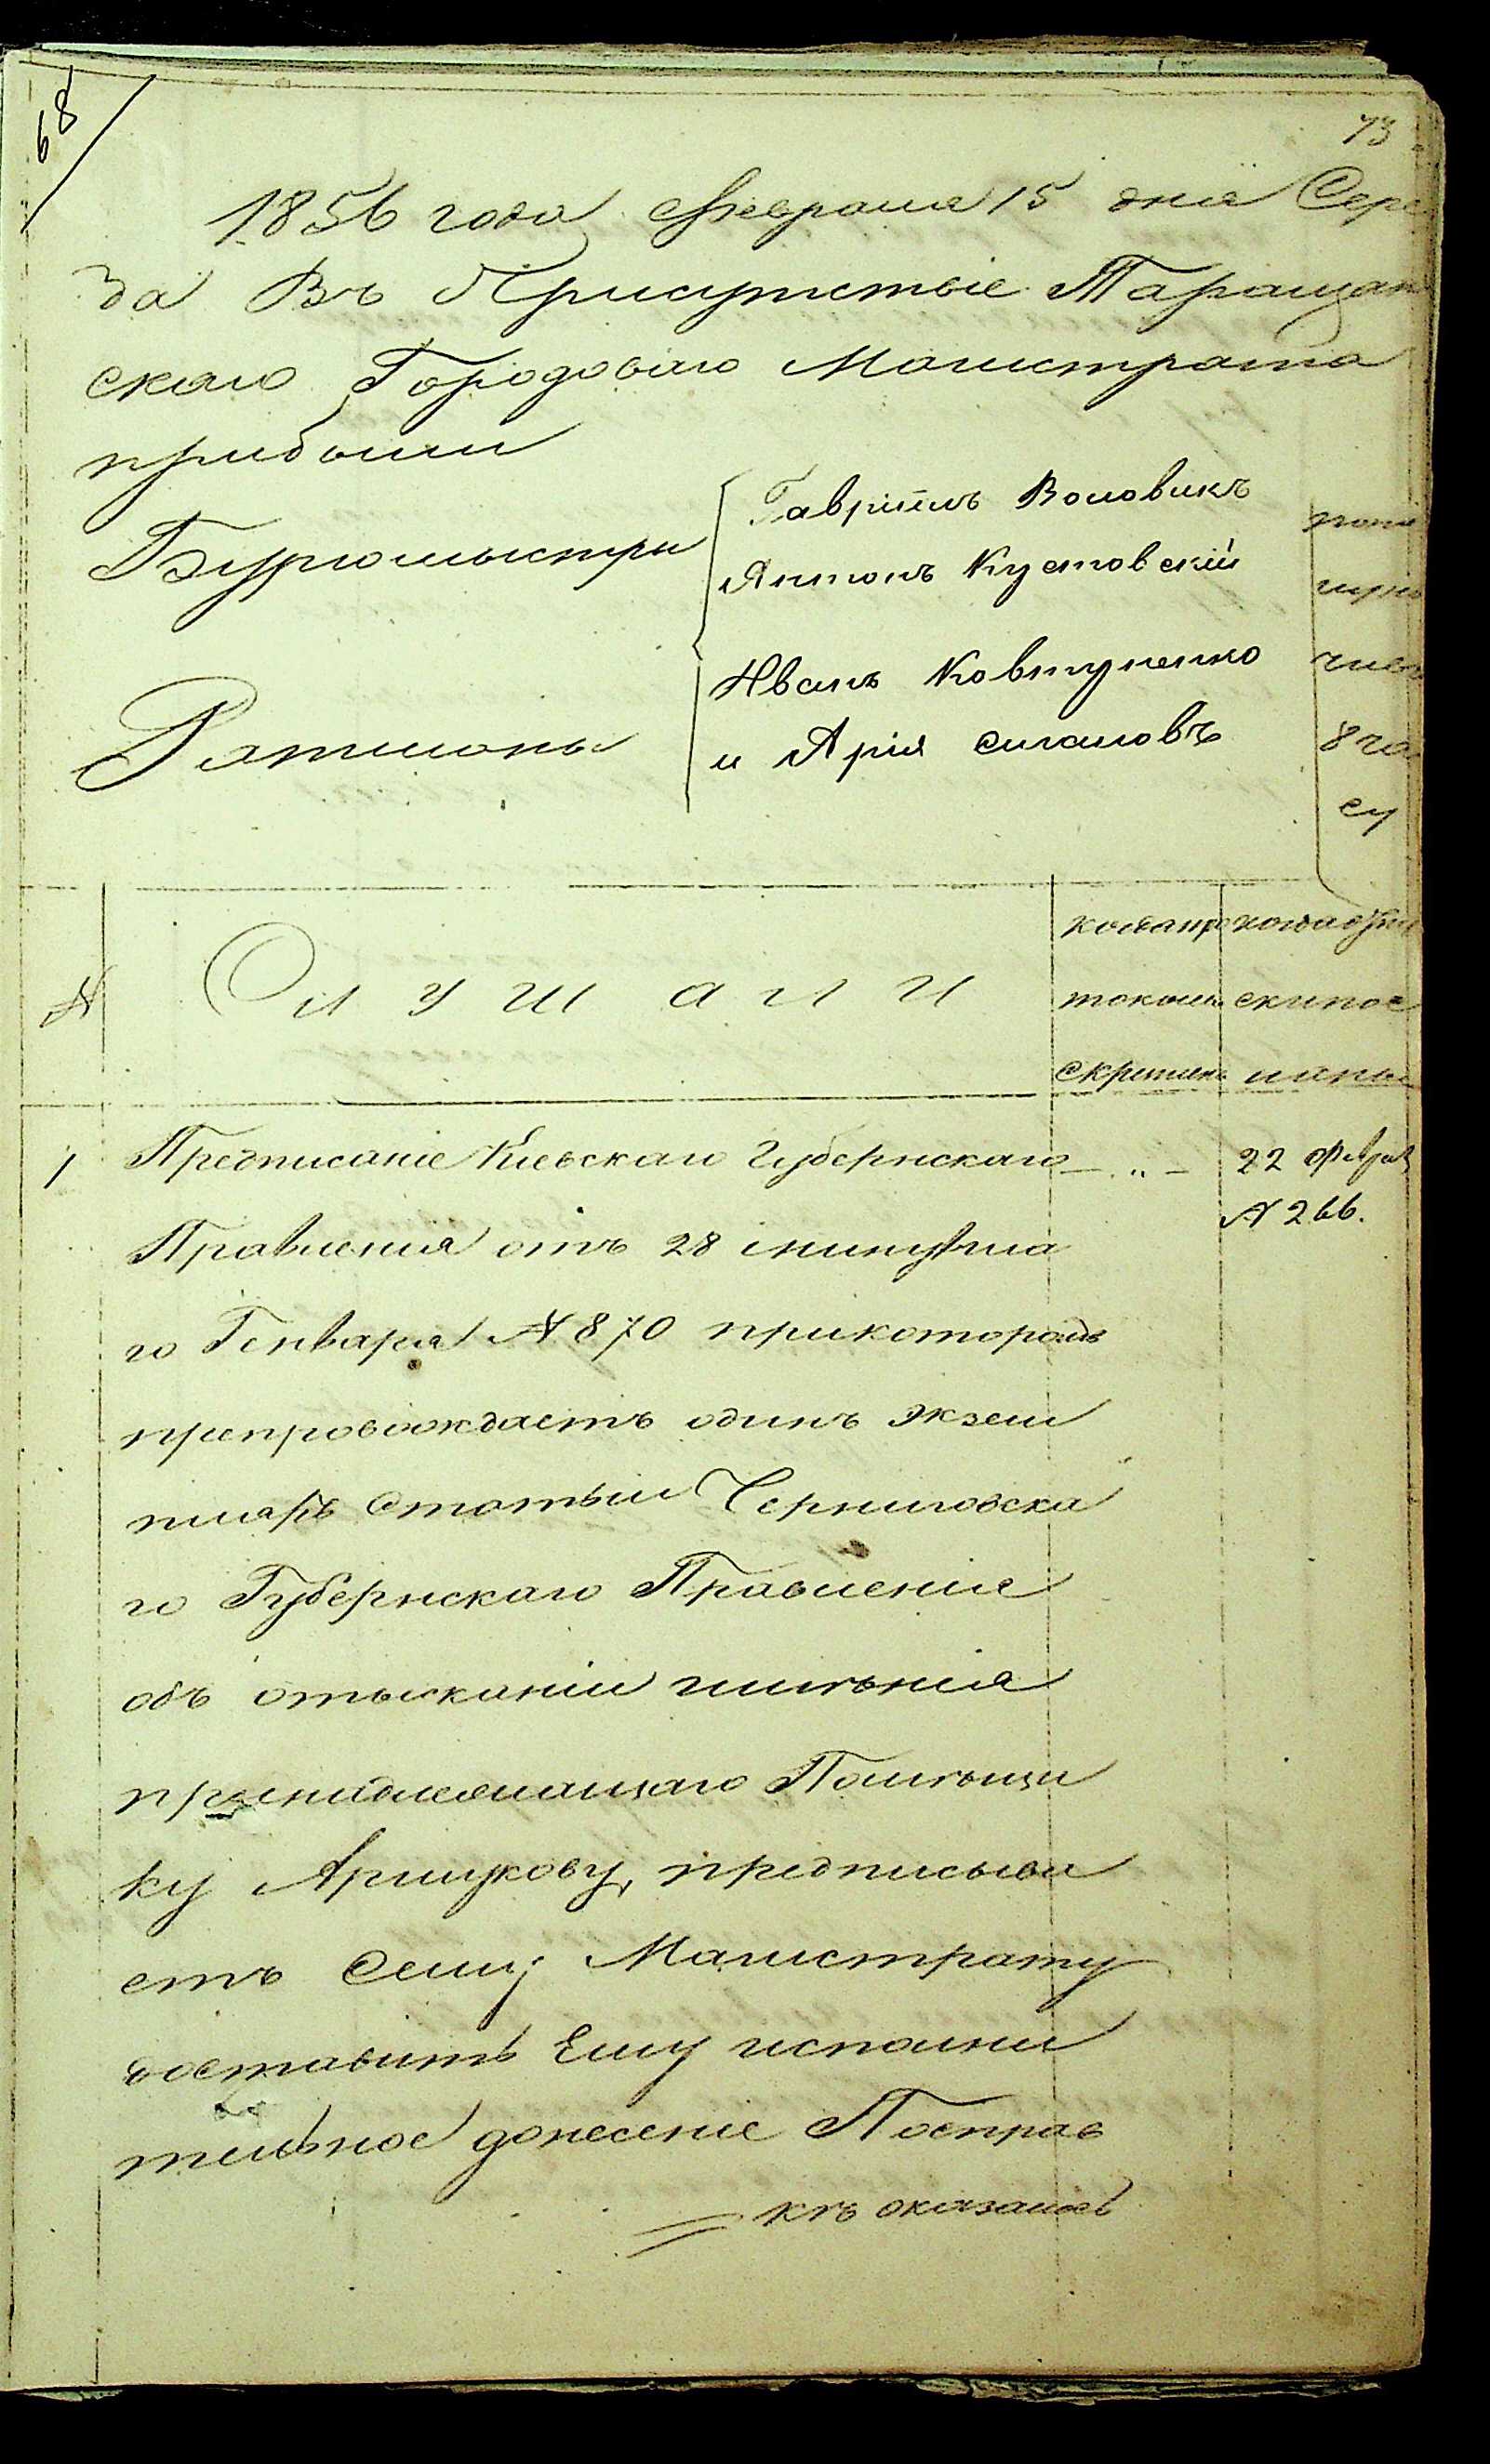 68
73
1856 года февраля 15 дня Сере
да Въ Присутствіе Таращан
скаго Городоваго Магистрата
прибыли
Бургомыстры
Гавріилъ Воловикъ
Антонъ Кустовскій
Ратманы
Иванъ Ковтуненко
и Арія Сигаловъ
попо
лунь
часа
№
Слушали
когда про
токолъ
скрепленъ
когда
1 Предписаніе Кіевскаго Губернскаго
Правленія отъ 28 минувша
го Генваря № 870 прикоторомъ
препровождаетъ одинъ экзем
пляръ Статьи Черниговска
го Губернскаго Правленія
объ отысканіи имѣнія
принадлежащаго Помѣщи
ку Аршукову, предписыва
етъ Сему Магистрату
доставить Ему исполни
тельное донесеніе Посправ
кѣ оказалось
— „ —
22 Февраля
№ 266.